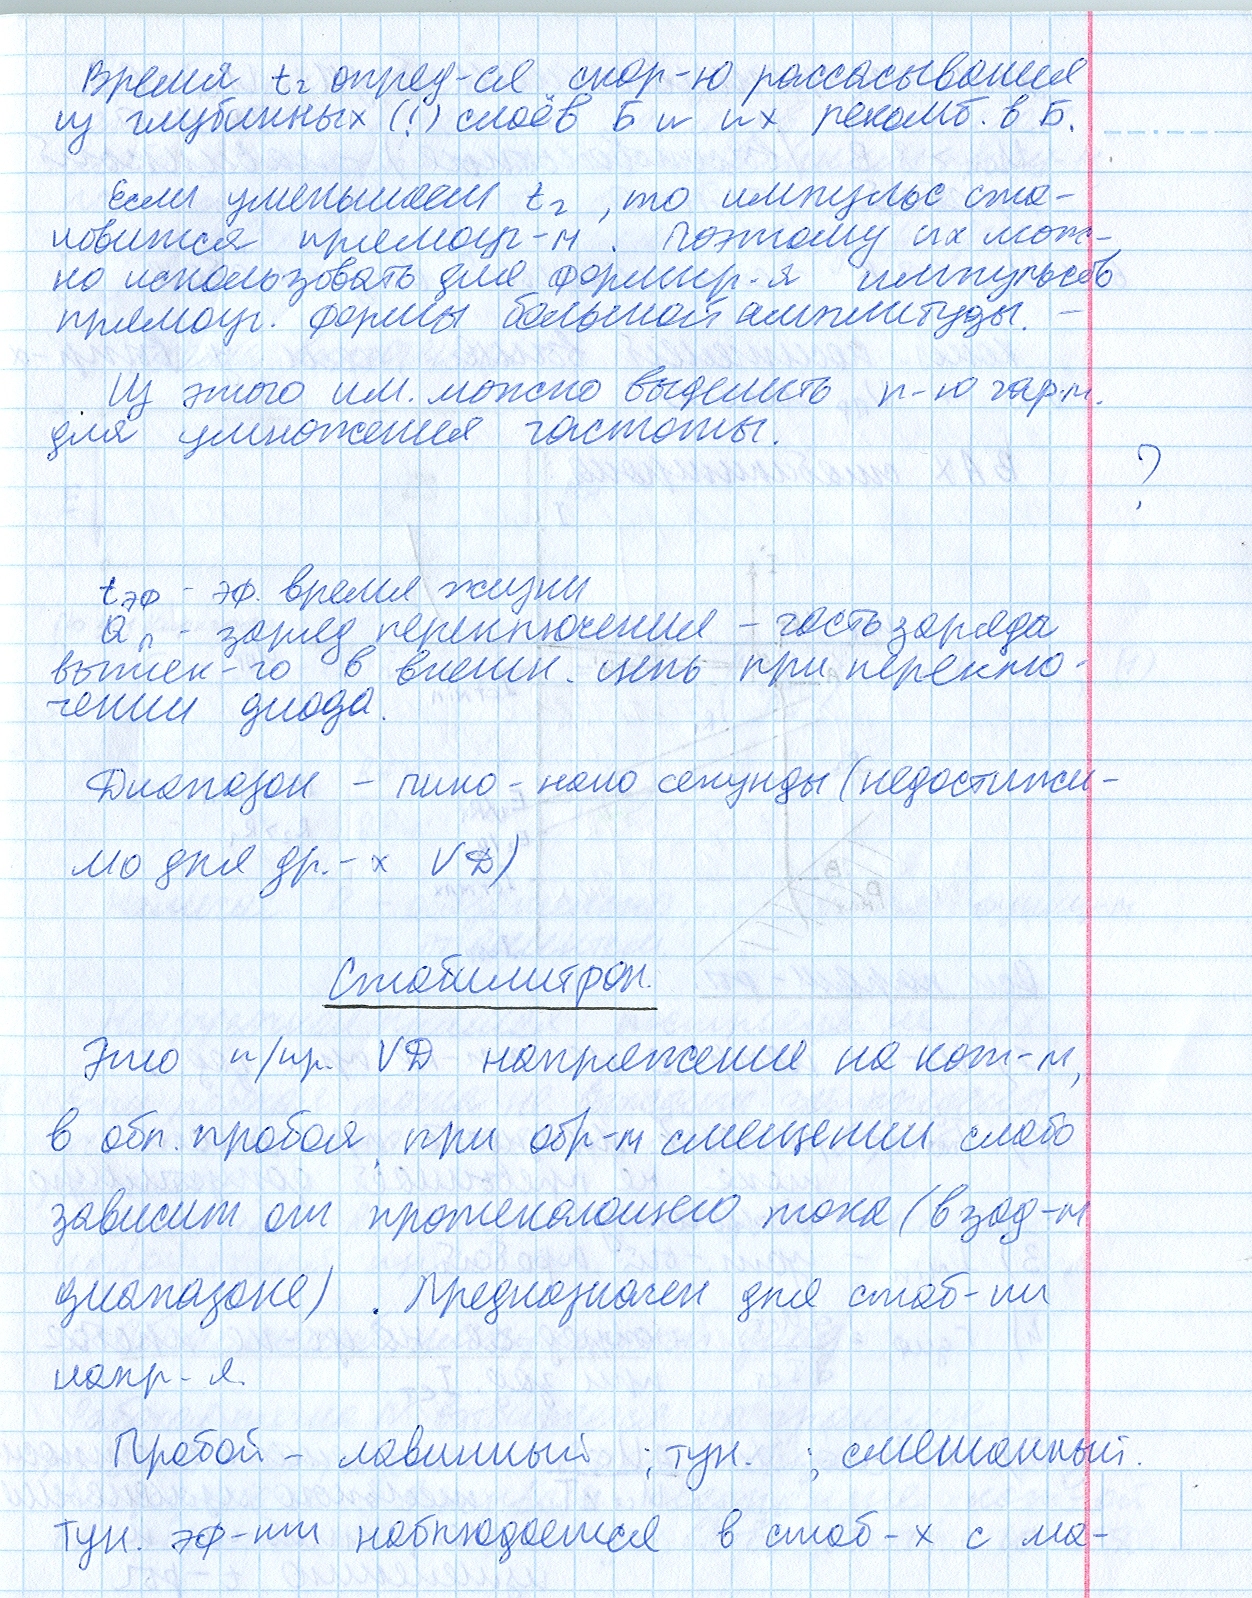 Время t₂ опред-ся скор-ю рассасывания
из глубинных (!) слоёв Б и их рекомб. в Б.
Если уменьшаем t₂, то импульс ста-
новится прямоуг-м. Поэтому их мож-
но использовать для формир-я импульсов
прямоуг. формы большой амплитуды.
Из этого им. можно выделить n-ю гарм.
для умножения частоты.
?
tэф - эф. время жизни
Qп - заряд переключения - часть заряда
вытек-го в внешн. цепь при переклю-
чении диода.
Диапазон - пико-нано секунды (недостижи-
мо для др.-х VD)
Стабилитрон.
Это п/пр. VD напряжение на кот-м,
в обл. пробоя при обр-м смещении слабо
зависит от протекающего тока (в зад-м
диапазоне). Предназначен для стаб-ии
напр-я.
Пробой - лавинный ; тун. ; смешанный.
Тун. эф-кт наблюдается в стаб-х с ма-